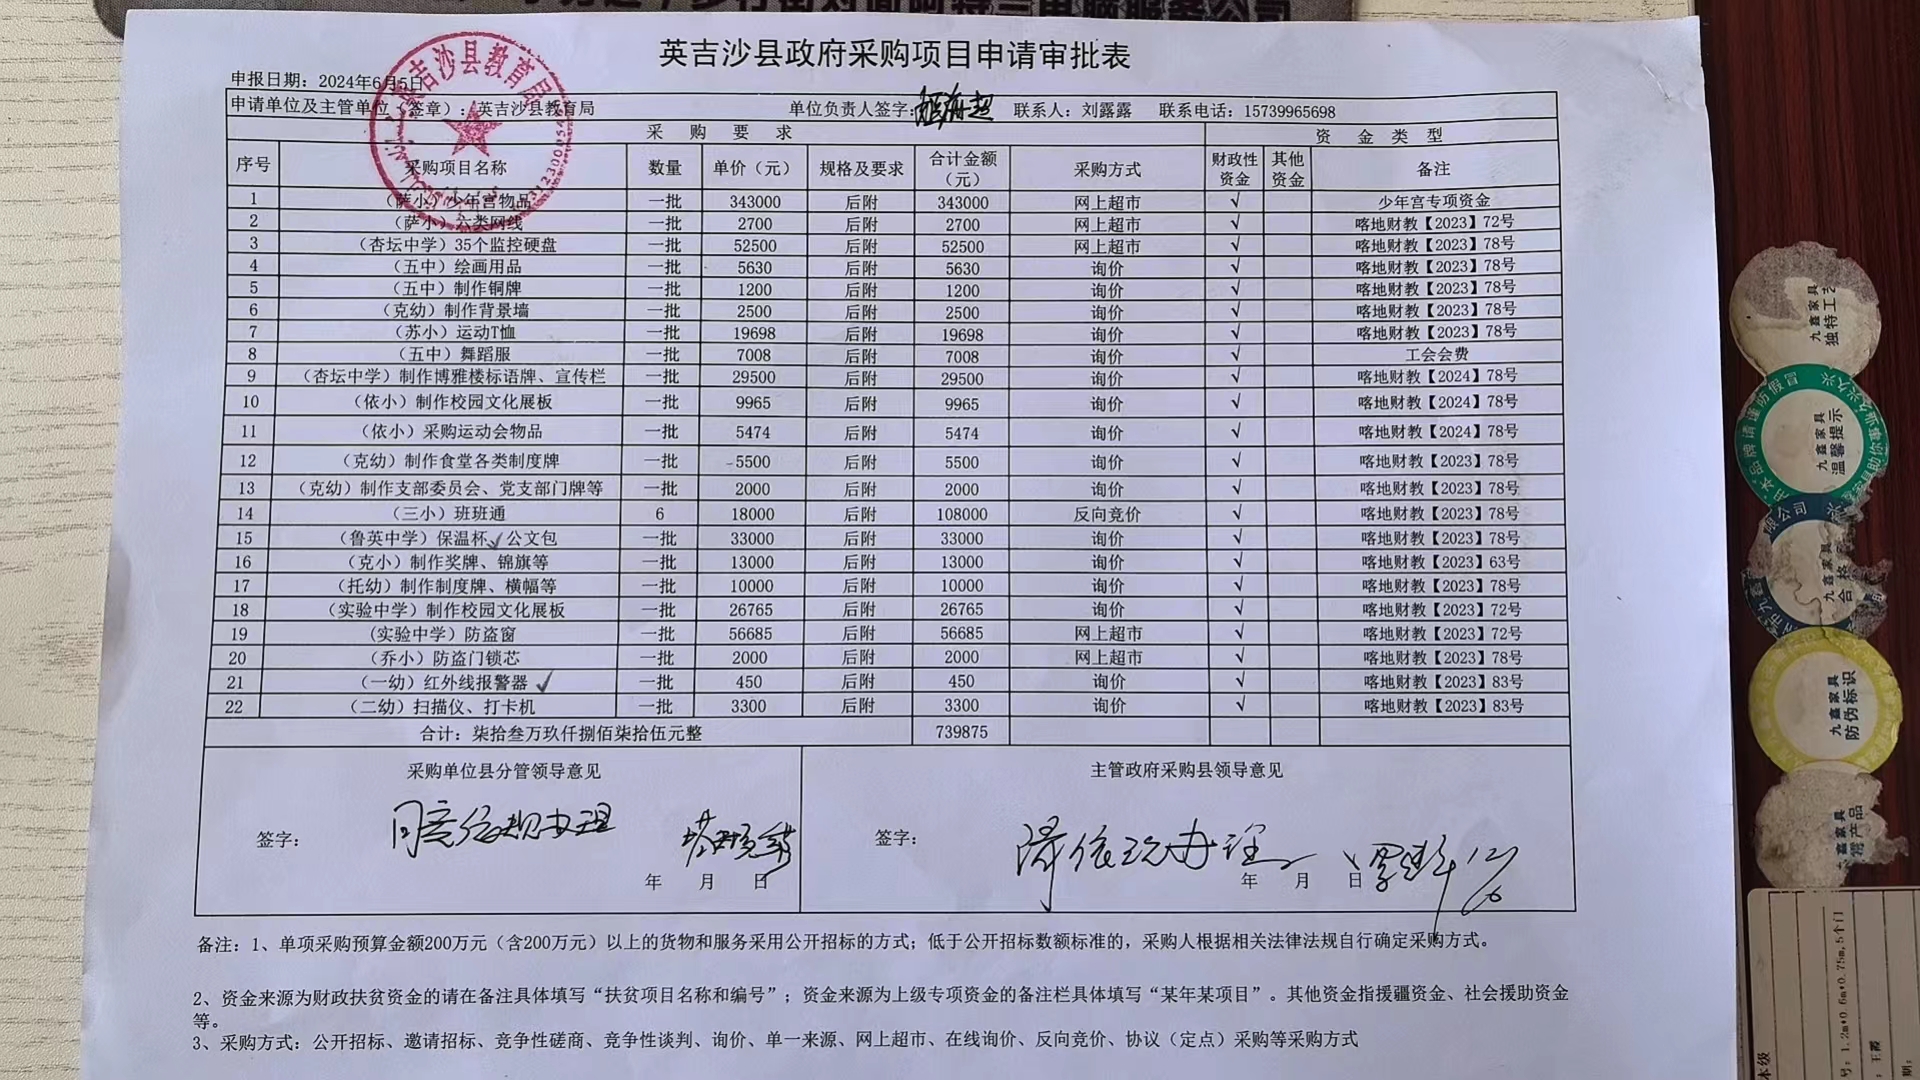 英吉沙县政府采购项目申请审批表
申报日期：2024年6月5日
申请单位及主管单位（签章）：英吉沙县教育局 单位负责人签字： 联系人：刘露露 联系电话：15739965698
采 购 要 求 资 金 类 型
序号 采购项目名称 数量 单价（元） 规格及要求 合计金额（元） 采购方式 财政性资金 其他资金 备注
1 （萨小）少年宫物品 一批 343000 后附 343000 网上超市 √ 少年宫专项资金
2 （萨小）六类网线 一批 2700 后附 2700 网上超市 √ 喀地财教【2023】72号
3 （杏坛中学）35个监控硬盘 一批 52500 后附 52500 网上超市 √ 喀地财教【2023】78号
4 （五中）绘画用品 一批 5630 后附 5630 询价 √ 喀地财教【2023】78号
5 （五中）制作铜牌 一批 1200 后附 1200 询价 √ 喀地财教【2023】78号
6 （克幼）制作背景墙 一批 2500 后附 2500 询价 √ 喀地财教【2023】78号
7 （苏小）运动T恤 一批 19698 后附 19698 询价 √ 喀地财教【2023】78号
8 （五中）舞蹈服 一批 7008 后附 7008 询价 √ 工会会费
9 （杏坛中学）制作博雅楼标语牌、宣传栏 一批 29500 后附 29500 询价 √ 喀地财教【2024】78号
10 （依小）制作校园文化展板 一批 9965 后附 9965 询价 √ 喀地财教【2024】78号
11 （依小）采购运动会物品 一批 5474 后附 5474 询价 √ 喀地财教【2024】78号
12 （克幼）制作食堂各类制度牌 一批 5500 后附 5500 询价 √ 喀地财教【2023】78号
13 （克幼）制作支部委员会、党支部门牌等 一批 2000 后附 2000 询价 √ 喀地财教【2023】78号
14 （三小）班班通 6 18000 后附 108000 反向竞价 √ 喀地财教【2023】78号
15 （鲁英中学）保温杯、公文包 一批 33000 后附 33000 询价 √ 喀地财教【2023】78号
16 （克小）制作奖牌、锦旗等 一批 13000 后附 13000 询价 √ 喀地财教【2023】63号
17 （托幼）制作制度牌、横幅等 一批 10000 后附 10000 询价 √ 喀地财教【2023】78号
18 （实验中学）制作校园文化展板 一批 26765 后附 26765 询价 √ 喀地财教【2023】72号
19 （实验中学）防盗窗 一批 56685 后附 56685 网上超市 √ 喀地财教【2023】72号
20 （乔小）防盗门锁芯 一批 2000 后附 2000 网上超市 √ 喀地财教【2023】78号
21 （一幼）红外线报警器 一批 450 后附 450 询价 √ 喀地财教【2023】83号
22 （二幼）扫描仪、打卡机 一批 3300 后附 3300 询价 √ 喀地财教【2023】83号
合计：柒拾叁万玖仟捌佰柒拾伍元整 739875
采购单位县分管领导意见 主管政府采购县领导意见
签字： 同意依规办理
年 月 日
签字： 依规办理
年 月 日
备注：1、单项采购预算金额200万元（含200万元）以上的货物和服务采用公开招标的方式；低于公开招标数额标准的，采购人根据相关法律法规自行确定采购方式。
2、资金来源为财政扶贫资金的请在备注具体填写“扶贫项目名称和编号”；资金来源为上级专项资金的备注栏具体填写“某年某项目”。其他资金指援疆资金、社会援助资金
等。
3、采购方式：公开招标、邀请招标、竞争性磋商、竞争性谈判、询价、单一来源、网上超市、在线询价、反向竞价、协议（定点）采购等采购方式
九鑫家具
独特工艺
九鑫家具
温馨提示
九鑫家具
合格
九鑫家具
防伪标识
九鑫家具